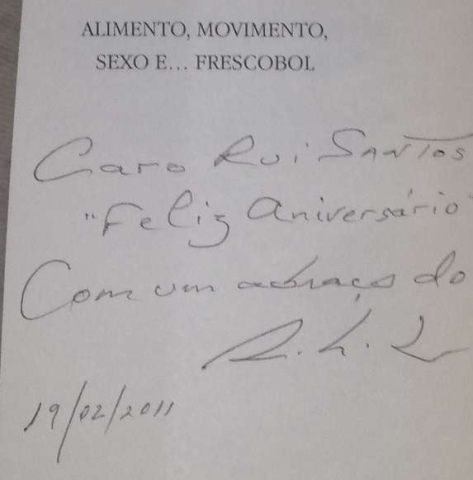 ALIMENTO, MOVIMENTO,
SEXO E... FRESCOBOL
Caro Rui SANTOS
"Feliz Aniversário"
Com um abraço do
19/02/2011